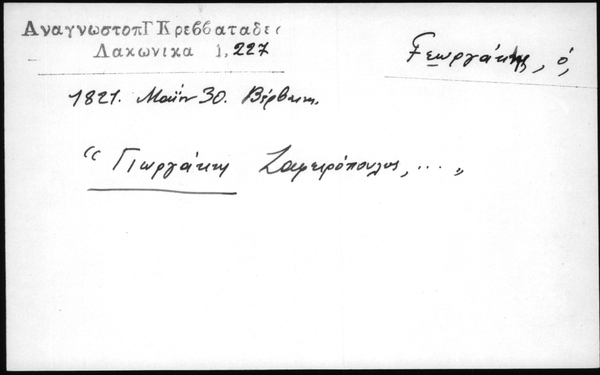 ΑναγνωστοπΓ Κρεββαταδες
Λακωνικα 1, 227
Γεωργάκης, ὁ,
1821. Μαΐου 30. Βέρβαινα.
“ Γιωργάκης Ζαφειρόπουλος, ... „